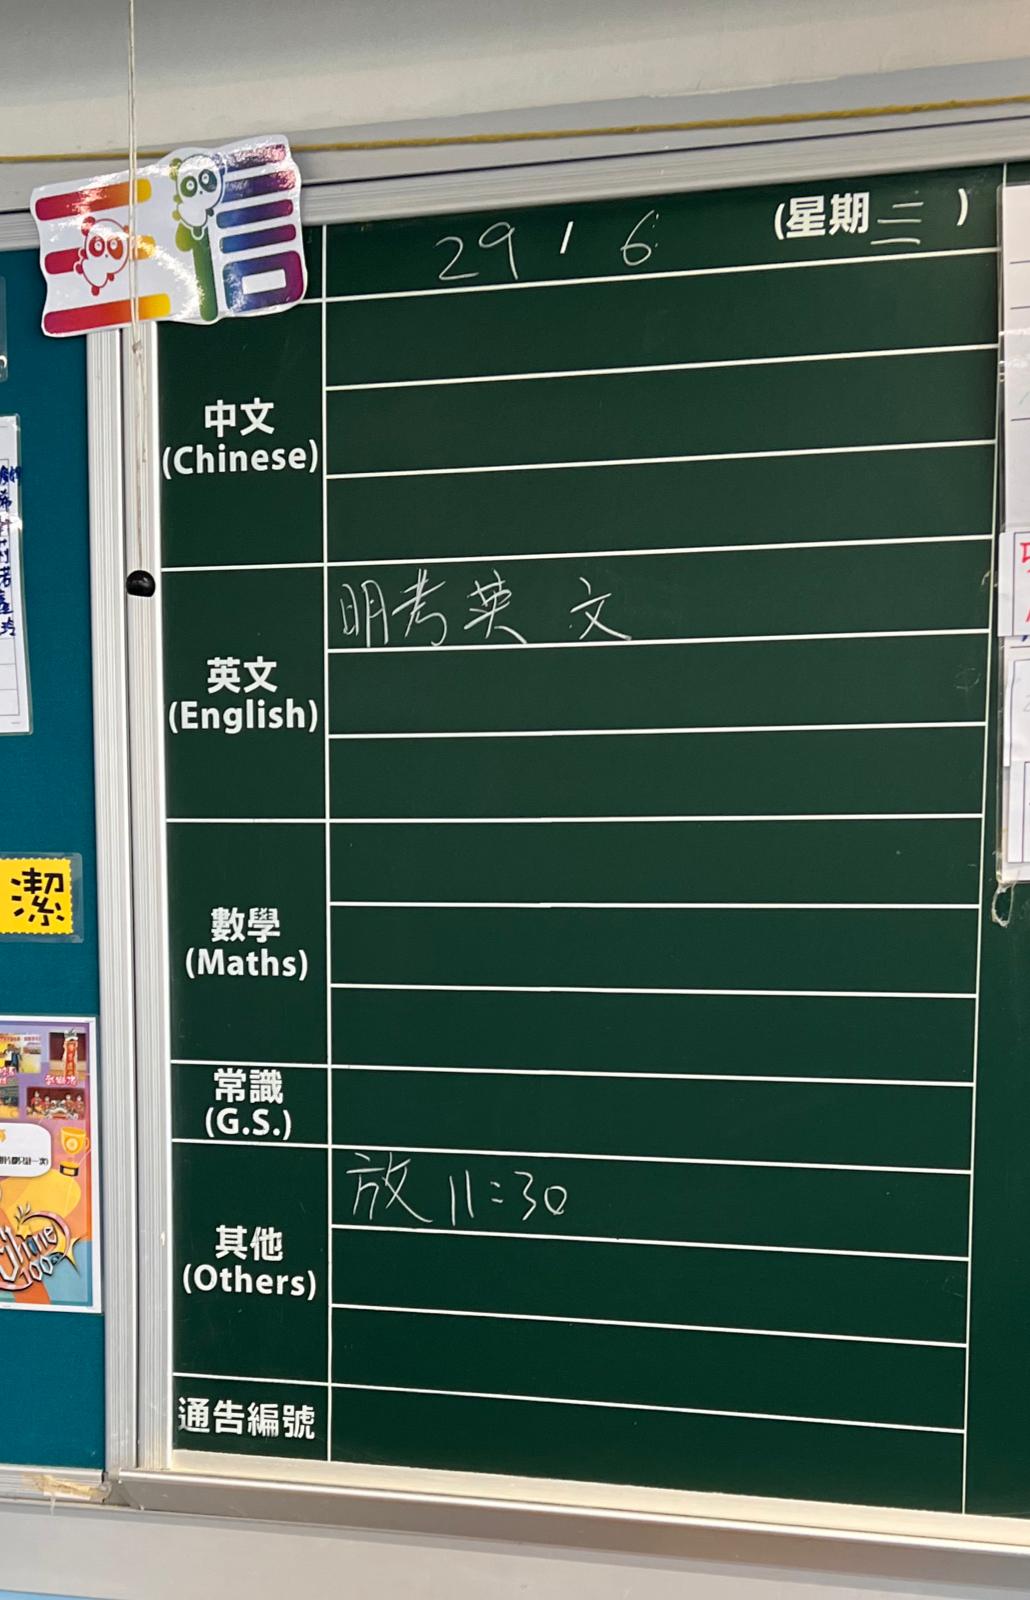 三信
29 / 6 (星期三)
中文
(Chinese)
明考英文
英文
(English)
數學
(Maths)
常識
(G.S.)
放 11:30
其他
(Others)
通告編號
潔